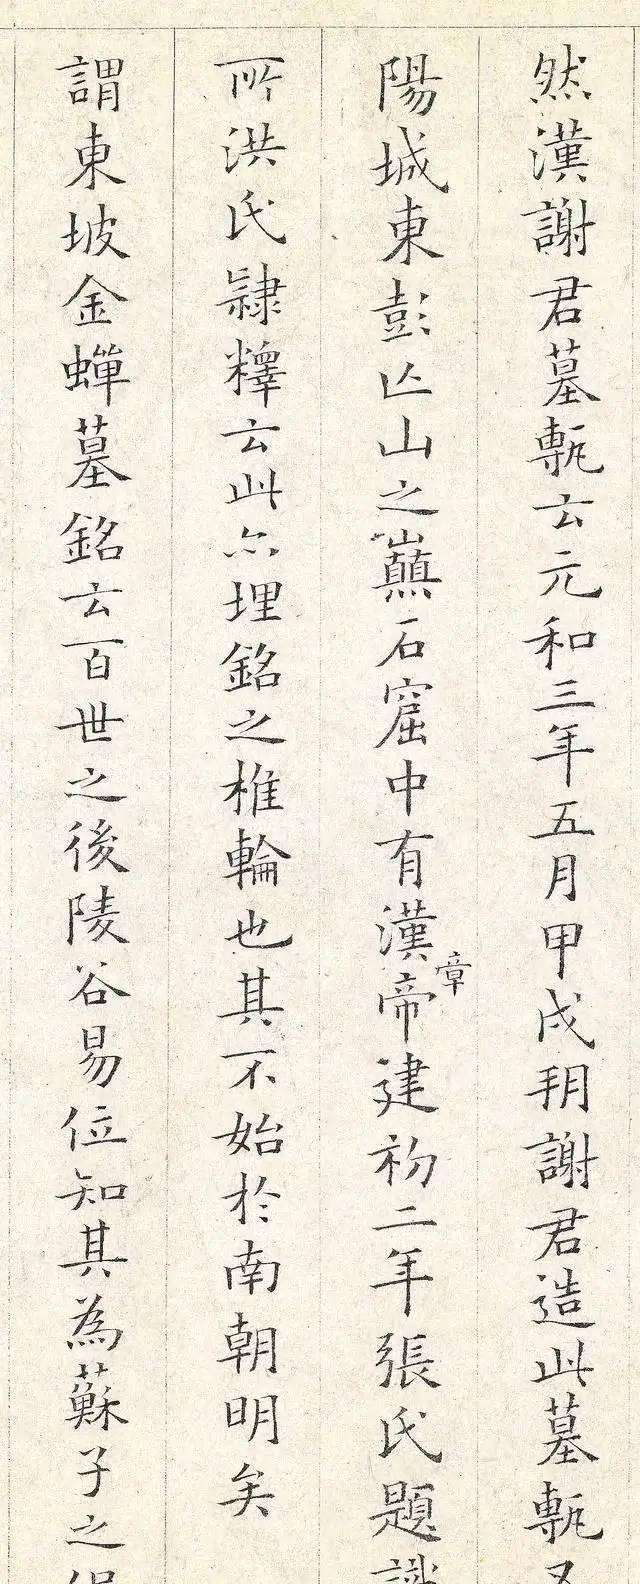 然漢謝君墓甎云元和三年五月甲戌朔謝君造此墓甎又
陽城東彭亡山之巔石窟中有漢章帝建初二年張氏題識
所洪氏隸釋云此亦埋銘之椎輪也其不始於南朝明矣
謂東坡金蟬墓銘云百世之後陵谷易位知其為蘇子之